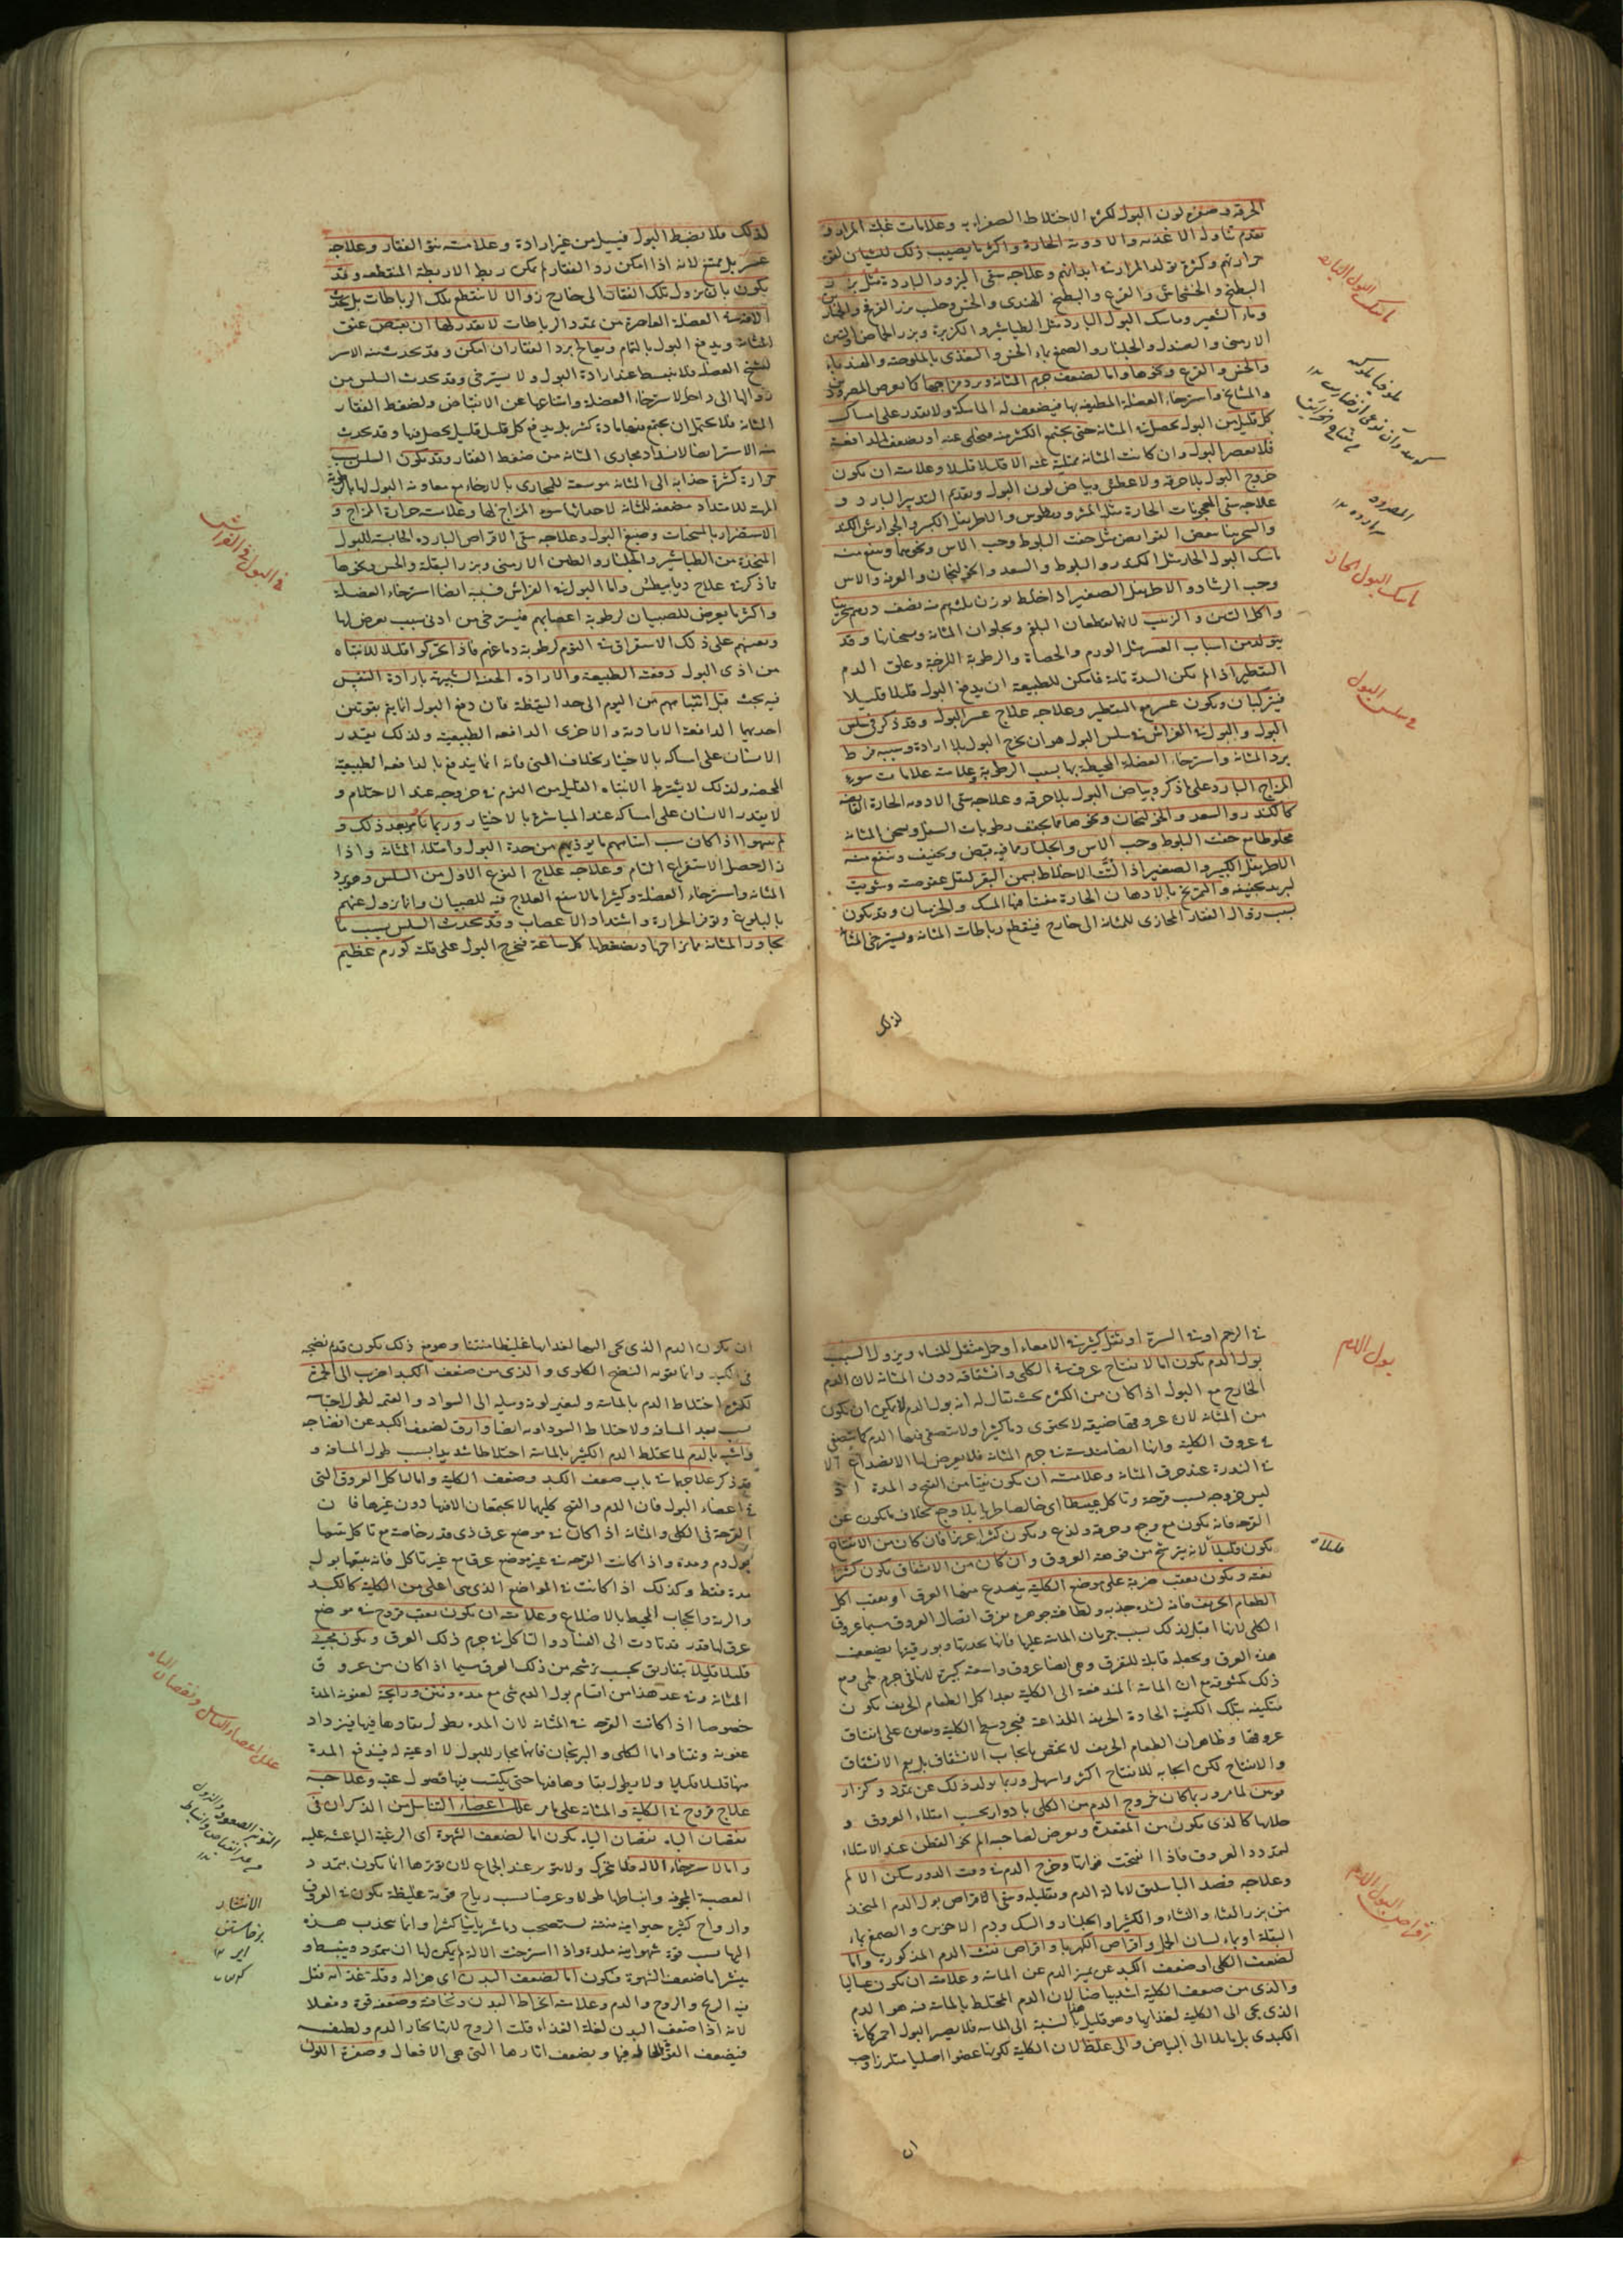 الحرقة وصفرة لون البول لكثرة الاختلاط الصفراوية وعلامات غلبة المرار و
تقدم تناول الاغذية والادوية الحارة واكثر ما يصيب ذلك للشبان لقوة
حرارتهم وكثرة تولد المرار في ابدانهم وعلاجه سقى البزور الباردة مثل بزر
البطيخ والخشخاش والقرع والبطيخ الهندى والخس وحليب بزر القرع والخيار
وماء الشعير وماسك البول البارد مثل الطباشير والكزبرة وبزر الحماض والطين
الارمنى والصندل والجلنار والصمغ بماء الخس والتغذى بالملوخية والهندباء
والخس والقرع ونحوها واما لضعف جرم المثانة وبرد مزاجها كما يعرض للمبرود
والمشايخ واسترخاء العضلة المطيفة بها فيضعف له الماسكة ولا تقدر على امساك
كل قليل من البول يحصل في المثانة حتى يجتمع الكثير منه فتخلى عنه او يضعف له الدافعة
فلا تعصر البول وان كانت المثانة ممتلية عنه الا قليلا قليلا وعلامته ان يكون
خروج البول بلا حرقة ولا عطش وبياض لون البول وتقدم التدبير البارد و
علاجه سقى المعجونات الحارة مثل المثروديطوس والاطريفل الكبير والجوارش الكندر
والسجرينا ببعض القوابض مثل جفت البلوط وحب الاس ونحوهما وينفع منه
ماسك البول الحار مثل الكندر والبلوط والسعد والخولنجان والمر والاس
وحب الرشاد والاطريفل الصغير اذا خلط بوزن ثلثيهم منه نصف درهم سجزنيا
واكل التين والزبيب لانهما يقطعان البلغم ويجلوان المثانة ويسخنانها وقد
يتولد من اسباب العسر مثل الورم والحصاة والرطوبة اللزجة وعلق الدم
التقطير اذا لم تكن السدة تامة فامكن للطبيعة ان يدفع البول قليلا قليلا
فيتركبان ويكون عسر مع التقطير وعلاجه علاج عسر البول وقد ذكر فى سلس
البول والبول في الفراش سلس البول هو ان يخرج البول بلا ارادة وسببه فرط
برد المثانة واسترخاء العضلة المحيطة بها بسبب الرطوبة وعلامته علامات سوء
المزاج البارد على ما ذكر وبياض البول بلا حرقة وعلاجه سقى الادوية الحارة القابضة
كالكندر والسعد والخولنجان ونحوها مما يجفف رطوبات السفل ويسخن المثانة
مخلوطا مع جفت البلوط وحب الاس والجلنار مما فيه قبض وتجفيف وينفع منه
الاطريفل الكبير والصغير اذا لتت الاخلاط بسمن البقر لتقل عفوصته وشويت
ليزيد تجفيفه والتمريخ بالادهان الحارة مفتقا فيها المسك والخزميان وقد يكون
بسبب زوال الفقار المحاذى للمثانة الى خارج فينقطع رباطات المثانة ويسترخى المثانة
لذلك
ماسك البول البارد
ماسك البول الحار
فى سلس البول
المبرود
لذلك فلا تضبط البول فيسيل من غير ارادة وعلامته نتو الفقار وعلاجه
عسر بل ممتنع لانه اذا امكن رد الفقار لم يمكن ربط الاربطة المنقطعة وقد
يكون بان يزول تلك الفقار الى خارج زوالا لا تنقطع تلك الرباطات بل يحدث
لآفة في العضلة العاصرة من تمدد الرباطات لا تقدر لها ان تقبض عنق
المثانة ويدفع البول بالتمام ويعالج برد الفقار ان امكن وقد يحدث منه الاسر
لتشنج العضلة فلا تنبسط عند ارادة البول ولا يسترخى وقد يحدث السلس من
زوالها الى داخل لاسترخاء العضلة وامتناعها عن الانقباض ولضغط الفقار
المثانة فلا يحتمل ان يجتمع فيها مادة كثير بل يدفع كل قليل قليل يحصل فيها وقد يحدث
منه الاسر ايضا لانسداد مجارى المثانة من ضغط الفقار وقد يكون السلس بسبب
حرارة كثيرة جذابة الى المثانة موسعة للمجارى بالارخاء مع معاونة البول لها بالرطوبة
المرخية للامتداد مضعفة للمثانة لاحداثها سوء المزاج لها وعلامته حرارة المزاج و
الاستضرار بالمسخنات وصبغ البول وعلاجه سقى الاقراص الباردة الحابسة للبول
المتخذة من الطباشير والجلنار والطين الارمنى وبزر البقلة والخس ونحوها
ما ذكر في علاج ديابيطس واما البول في الفراش فسببه ايضا استرخاء العضلة
واكثر ما يعرض للصبيان لرطوبة اعصابهم فيسترخى من ادنى سبب يعرض لها
ويعينهم على ذلك الاستغراق في النوم لرطوبة دماغهم فاذا تحركوا قليلا للانتباه
من اذى البول دفعت الطبيعة والارادة الخفية الشبيهة بارادة التنفس
فيه بحث قبل انتباههم من النوم الى حد اليقظة فان دفع البول انما يتم بقوتين
احديهما الدافعة الارادية والاخرى الدافعة الطبيعية ولذلك يقتدر
الانسان على امساكه بالاختيار بخلاف المنى فانه انما يندفع بالدافعة الطبيعية
المحضة ولذلك لا يشترط الانتباه القليل من النوم في خروجه عند الاحتلام و
لا يقدر الانسان على امساكه عند المباشرة بالاختيار وربما تاخر بعد ذلك و
لم ينتبهوا اذا كان سبب انتباههم ما يوذيهم من حدة البول وامتلاء المثانة واذا
زال حصل الاستغراق التام وعلاجه علاج النوع الاول من السلس وهو برد
المثانة واسترخاء العضلة وكثيرا ما لا ينفع العلاج فيه للصبيان وانما يزول عنهم
بالبلوغ وتوفر الحرارة واشتداد الاعصاب وقد يحدث السلس بسبب ما
يجاور المثانة مما يزاحمها ويضغطها كل ساعة فيخرج البول على قلة كورم عظيم
فى البول فى الفراش
في الرحم او في السرة او ثفل كثير في الامعاء او حمل مثقل للنساء ويزول السبب
بول الدم يكون اما لانفتاح عرق في الكلى وانشقاقه دون المثانة لان الدم
الخارج مع البول اذا كان من الكثرة بحيث يقال له انه بول الدم لا يمكن ان يكون
من المثانة لان عروقها ضيقة لا يحتوى دما كثيرا ولا يتصفى فيها الدم كما يتصفى
فى عروق الكلية وانها ايضا مندسة في جرم المثانة فلا يعرض لها الانصداع الا
في الندرة عند حرق المثانة وعلامته ان يكون نقيا من القيح والمدة اذ
ليس خروجه بسبب قرحة وتاكل عبيطا اى خالصا طريا بلا وجع بخلاف ما يكون عن
القرحة فانه يكون مع وجع وحرقة ولذع ويكون كثيرا عزيزا فان كان من الانفتاح
يكون قليلا لانه يترشح من فوهة العروق وان كان من الانشقاق يكون كثيرا
بغتة ويكون بعقب ضربة على موضع الكلية ينصدع منها العرق او بعقب اكل
الطعام الحريف فانه لشدة جذبه ولطافة جوهره يفرق اتصال العروق سيما عروق
الكلى لانها اقبل لذلك بسبب جريان المائية عليها فانها بحدتها وبورقيتها يضعف
هذه العروق ويجعله قابلة للتفرق وهى ايضا عروق واسعة كبيرة لانها فى جرم لحمى ومع
ذلك كمثوية مع ان المائية المندفعة الى الكلية بعد اكل الطعام الحريف يكون
متكيفة بتلك الكيفية الحادة الحريفة اللذاعة فيجرد سطح الكلية ويعين على انشقاق
عروقها وظاهر ان الطعام الحريف لا يختص بايجاب الانشقاق بل يعم الانشقاق
والانفتاح لكن ايجابه للانفتاح اكثر واسهل وربما يولد ذلك عن تمدد وكزاز
قوس لما مر وربما كان خروج الدم من الكلى بادوار بحسب امتلاء العروق و
خلائها كالذى يكون من المقعدة ويعرض لصاحبه الم نحو القطن عند الامتلاء
لتمدد العروق فاذا انفتحت فوهاتها وخرج الدم في وقت الدور سكن الالم
وعلاجه فصد الباسليق لامالة الدم وتقليله وسقى اقراص بول الدم المتخذ
من بزر القثاء والنشاء والكثيرا والجلنار والسك ودم الاخوين والصمغ بماء
البقلة او بماء لسان الحمل واقراص الكهربا واقراص نفث الدم المذكورة واما
لضعف الكلى او ضعف الكبد عن تمييز الدم عن المائية وعلامته ان يكون غساليا
والذى من ضعف الكلية اشد بياضا لان الدم المختلط بالمائية فيه هو الدم
الذى يجى الى الكلية لغذايها وهو قليل بالنسبة الى المائية فلا يصير البول احمر كما في
الكبدى بل مايلا الى البياض والى غلظ لان الكلية لكونها عضوا اصليا متلززا وجب
ان
بول الدم
اقراص البول الدم
ان يكون الدم الذى يجى اليها لغذايها غليظا متينا وهو مع ذلك يكون قد تم نضجه
فى الكبد وانما يفوته النضج الكلوى والذى من ضعف الكبد اضرب الى الحمرة
لكثرة اختلاط الدم بالمائية ولتغير لونه وميله الى السواد والقتمة لطول احتباسه
بسبب بعد المسافة ولاختلاط السوداء به ايضا وارق لضعف الكبد عن انضاجه
واشبه بالدم لما يختلط الدم الكثير بالمائية اختلاطا شديدا بسبب طول المسافة و
قد ذكر علاجهما في باب ضعف الكبد وضعف الكلية واما لتاكل العروق التى
فى اعضاء البول فان الدم والقيح كليهما لا يجتمعان الا فيها دون غيرها فان
القرحة فى الكلى والمثانة اذا كان في موضع عرق ذى قدر خاصة مع تاكل يتبعها
بول دم ومدة واذا كانت القرحة في غير موضع عرق مع غير تاكل فانه يتبعها بول
مدة فقط وكذلك اذا كانت في المواضع الذى هى اعلى من الكلية كالكبد
والرية والحجاب المحيط بالاضلاع وعلامته ان يكون بعقب قروح في موضع
عرق لها قدر قد تادت الى الفساد والتاكل في جرم ذلك العرق ويكون مجيئه
قليلا قليلا بتفاريق بحسب ترشحه من ذلك العرق سيما اذا كان من عروق
المثانة وفى عد هذا من اقسام بول الدم شى مع مدة ونتن ورايحة لعفونة المدة
خصوصا اذا كانت القرحة في المثانة لان المدة يطول بقاوها فيها فيزداد
عفونة ونتنا واما الكلى والبربخان فانها مجار للبول لا اوعية له فيندفع المدة
منها قليلا قليلا ولا يطول بقاوها فيها حتى يكتسب فيها فضول عفنة وعلاجه
علاج قروح في الكلية والمثانة على ما مر علل اعضاء التناسل من الذكران فى
نقصان الباء نقصان الباء يكون اما لضعف الشهوة اى الرغبة الباعثة عليه
واما لاسترخاء الآلة فلا يتحرك ولا يتوتر عند الجماع لان توترها انما يكون بتمدد
العصبة المجوفة وانبساطها طولا وعرضا بسبب رياح قوية غليظة يكون في العروق
وارواح كثيرة حيوانية منفثة يستصحب دما شريانيا كثيرا وانما ينجذب هذه
اليها بسبب قوة شهوانية ملذة واذا استرخت الآلة لم يكن لها ان يتمدد وينبسط و
ينتشر اما ضعف الشهوة فيكون اما لضعف البدن اى هزاله وقلة غذائه فتقل
فيه الريح والروح والدم وعلامته انحطاط البدن ونحافته وضعف قوة وفعلا
لانه اذا ضعف البدن لقلة الغذاء قلت الروح لانها بخار الدم ولطيفه
فيضعف القوة الحالة فيها ويضعف اثارها التى هى الافعال وصفرة اللون
علل اعضاء التناسل ونقصان الباه
الانتشار